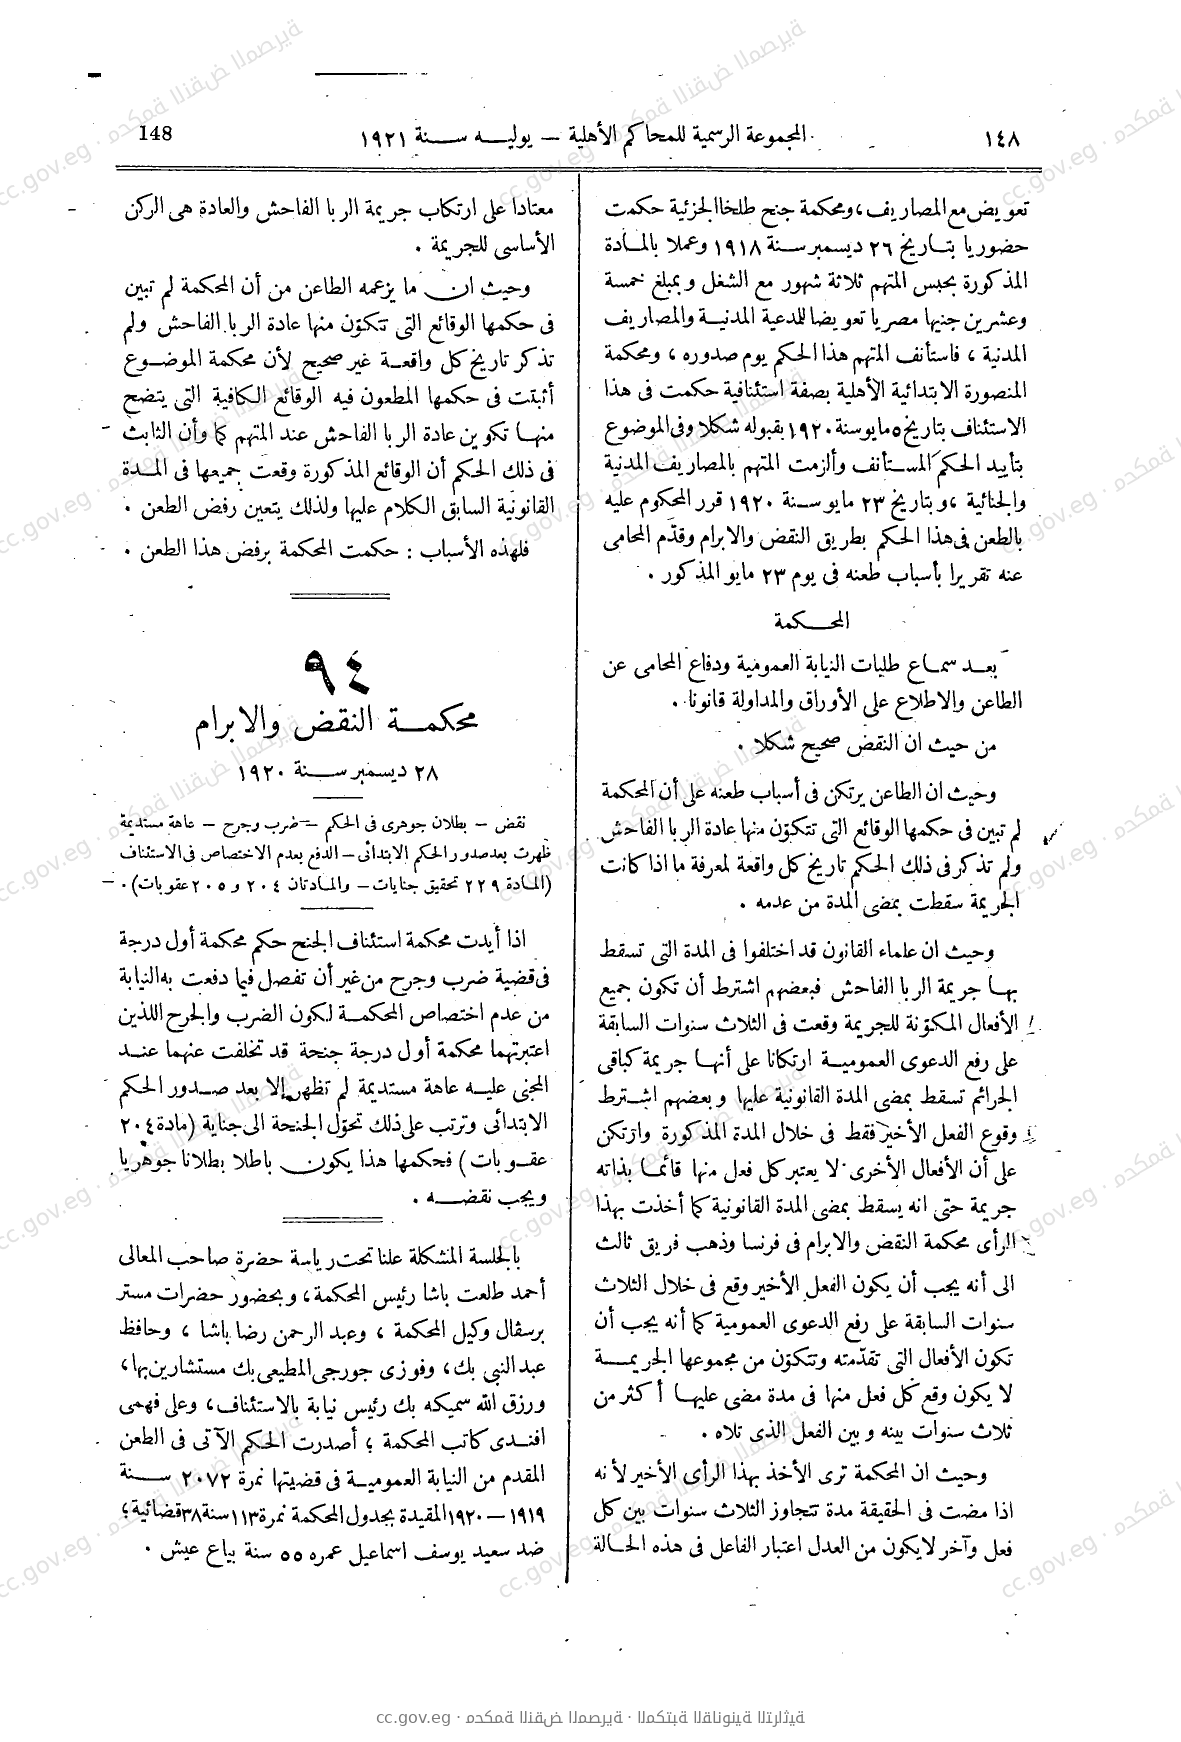 ١٤٨
المجموعة الرسمية للمحاكم الأهلية – يوليه سنة ١٩٢١
148
تعويض مع المصاريف، ومحكمة جنح طلخا الجزئية حكمت
حضوريا بتاريخ ٢٦ ديسمبر سنة ١٩١٨ وعملا بالمادة
المذكورة بحبس المتهم ثلاثة شهور مع الشغل وبمبلغ خمسة
وعشرين جنيها مصريا تعويضا للمدعية المدنية والمصاريف
المدنية، فاستأنف المتهم هذا الحكم يوم صدوره، ومحكمة
المنصورة الابتدائية الأهلية بصفة استئنافية حكمت فى هذا
الاستئناف بتاريخ ٥ مايو سنة ١٩٢٠ بقبوله شكلا وفى الموضوع
بتأييد الحكم المستأنف وألزمت المتهم بالمصاريف المدنية
والجنائية، وبتاريخ ٢٣ مايو سنة ١٩٢٠ قرر المحكوم عليه
بالطعن فى هذا الحكم بطريق النقض والابرام وقدّم المحامى
عنه تقريرا بأسباب طعنه فى يوم ٢٣ مايو المذكور.
المحكمة
بعد سماع طلبات النيابة العمومية ودفاع المحامى عن
الطاعن والاطلاع على الأوراق والمداولة قانونا.
من حيث ان النقض صحيح شكلا.
وحيث ان الطاعن يرتكن فى أسباب طعنه على أن المحكمة
لم تبين فى حكمها الوقائع التى تتكوّن منها عادة الربا الفاحش
ولم تذكر فى ذلك الحكم تاريخ كل واقعة لمعرفة ما اذا كانت
الجريمة سقطت بمضى المدة من عدمه.
وحيث ان علماء القانون قد اختلفوا فى المدة التى تسقط
بها جريمة الربا الفاحش فبعضهم اشترط أن تكون جميع
الأفعال المكوّنة للجريمة وقعت فى الثلاث سنوات السابقة
على رفع الدعوى العمومية ارتكانا على أنها جريمة كباقى
الجرائم تسقط بمضى المدة القانونية عليها وبعضهم اشترط
وقوع الفعل الأخير فقط فى خلال المدة المذكورة وارتكن
على أن الأفعال الأخرى لا يعتبر كل فعل منها قائما بذاته
جريمة حتى انه يسقط بمضى المدة القانونية كما أخذت بهذا
الرأى محكمة النقض والابرام فى فرنسا وذهب فريق ثالث
الى أنه يجب أن يكون الفعل الأخير وقع فى خلال الثلاث
سنوات السابقة على رفع الدعوى العمومية كما أنه يجب أن
تكون الأفعال التى تقدّمته وتتكوّن من مجموعها الجريمة
لا يكون وقع كل فعل منها فى مدة مضى عليها أكثر من
ثلاث سنوات بينه وبين الفعل الذى تلاه.
وحيث ان المحكمة ترى الأخذ بهذا الرأى الأخير لأنه
اذا مضت فى الحقيقة مدة تتجاوز الثلاث سنوات بين كل
فعل وآخر لا يكون من العدل اعتبار الفاعل فى هذه الحالة
معتادا على ارتكاب جريمة الربا الفاحش والعادة هى الركن
الأساسى للجريمة.
وحيث ان ما يزعمه الطاعن من أن المحكمة لم تبين
فى حكمها الوقائع التى تتكوّن منها عادة الربا الفاحش ولم
تذكر تاريخ كل واقعة غير صحيح لأن محكمة الموضوع
أثبتت فى حكمها المطعون فيه الوقائع الكافية التى يتضح
منها تكوين عادة الربا الفاحش عند المتهم كما وأن الثابت
فى ذلك الحكم أن الوقائع المذكورة وقعت جميعها فى المدة
القانونية السابق الكلام عليها ولذلك يتعين رفض الطعن.
فلهذه الأسباب : حكمت المحكمة برفض هذا الطعن.
٩٤
محكمة النقض والابرام
٢٨ ديسمبر سنة ١٩٢٠
نقض – بطلان جوهرى فى الحكم – ضرب وجرح – عاهة مستديمة
ظهرت بعد صدور الحكم الابتدائى – الدفع بعدم الاختصاص فى الاستئناف
(المادة ٢٢٩ تحقيق جنايات – والمادتان ٢٠٤ و ٢٠٥ عقوبات).
اذا أيدت محكمة استئناف الجنح حكم محكمة أول درجة
فى قضية ضرب وجرح من غير أن تفصل فيما دفعت به النيابة
من عدم اختصاص المحكمة لكون الضرب والجرح اللذين
اعتبرتهما محكمة أول درجة جنحة قد تخلفت عنهما عند
المجنى عليه عاهة مستديمة لم تظهر إلا بعد صدور الحكم
الابتدائى وترتب على ذلك تحوّل الجنحة الى جناية (مادة ٢٠٤
عقوبات) فحكمها هذا يكون باطلا بطلانا جوهريا
ويجب نقضه.
بالجلسة المشكلة علنا تحت رياسة حضرة صاحب المعالى
أحمد طلعت باشا رئيس المحكمة، وبحضور حضرات مستر
برسڤال وكيل المحكمة، وعبد الرحمن رضا باشا، وحافظ
عبد النبي بك، وفوزى جورجى المطيعى بك مستشارين بها،
ورزق الله سميكه بك رئيس نيابة بالاستئناف، وعلى فهمى
افندى كاتب المحكمة؛ أصدرت الحكم الآتى فى الطعن
المقدم من النيابة العمومية فى قضيتها نمرة ٢٠٧٢ سنة
١٩١٩ – ١٩٢٠ المقيدة بجدول المحكمة نمرة ١١٣ سنة ٣٨ قضائية؛
ضد سعيد يوسف اسماعيل عمره ٥٥ سنة بياع عيش.
cc.gov.eg · محكمة النقض المصرية · المكتبة القانونية التراثية